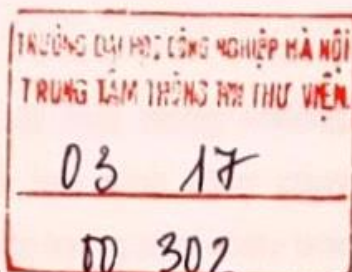 TRƯỜNG ĐẠI HỌC CÔNG NGHIỆP HÀ NỘI
TRUNG TÂM THÔNG TIN THƯ VIỆN
03 17
302